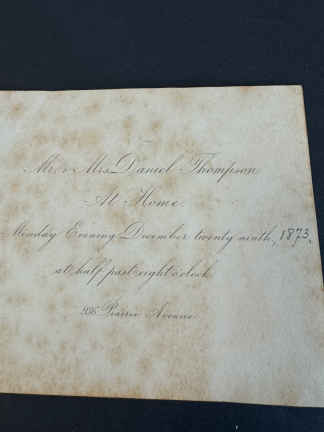 Mr. & Mrs. Daniel Thompson
At Home
Monday Evening December twenty ninth, 1873.
at half past eight o'clock
Prairie Avenue